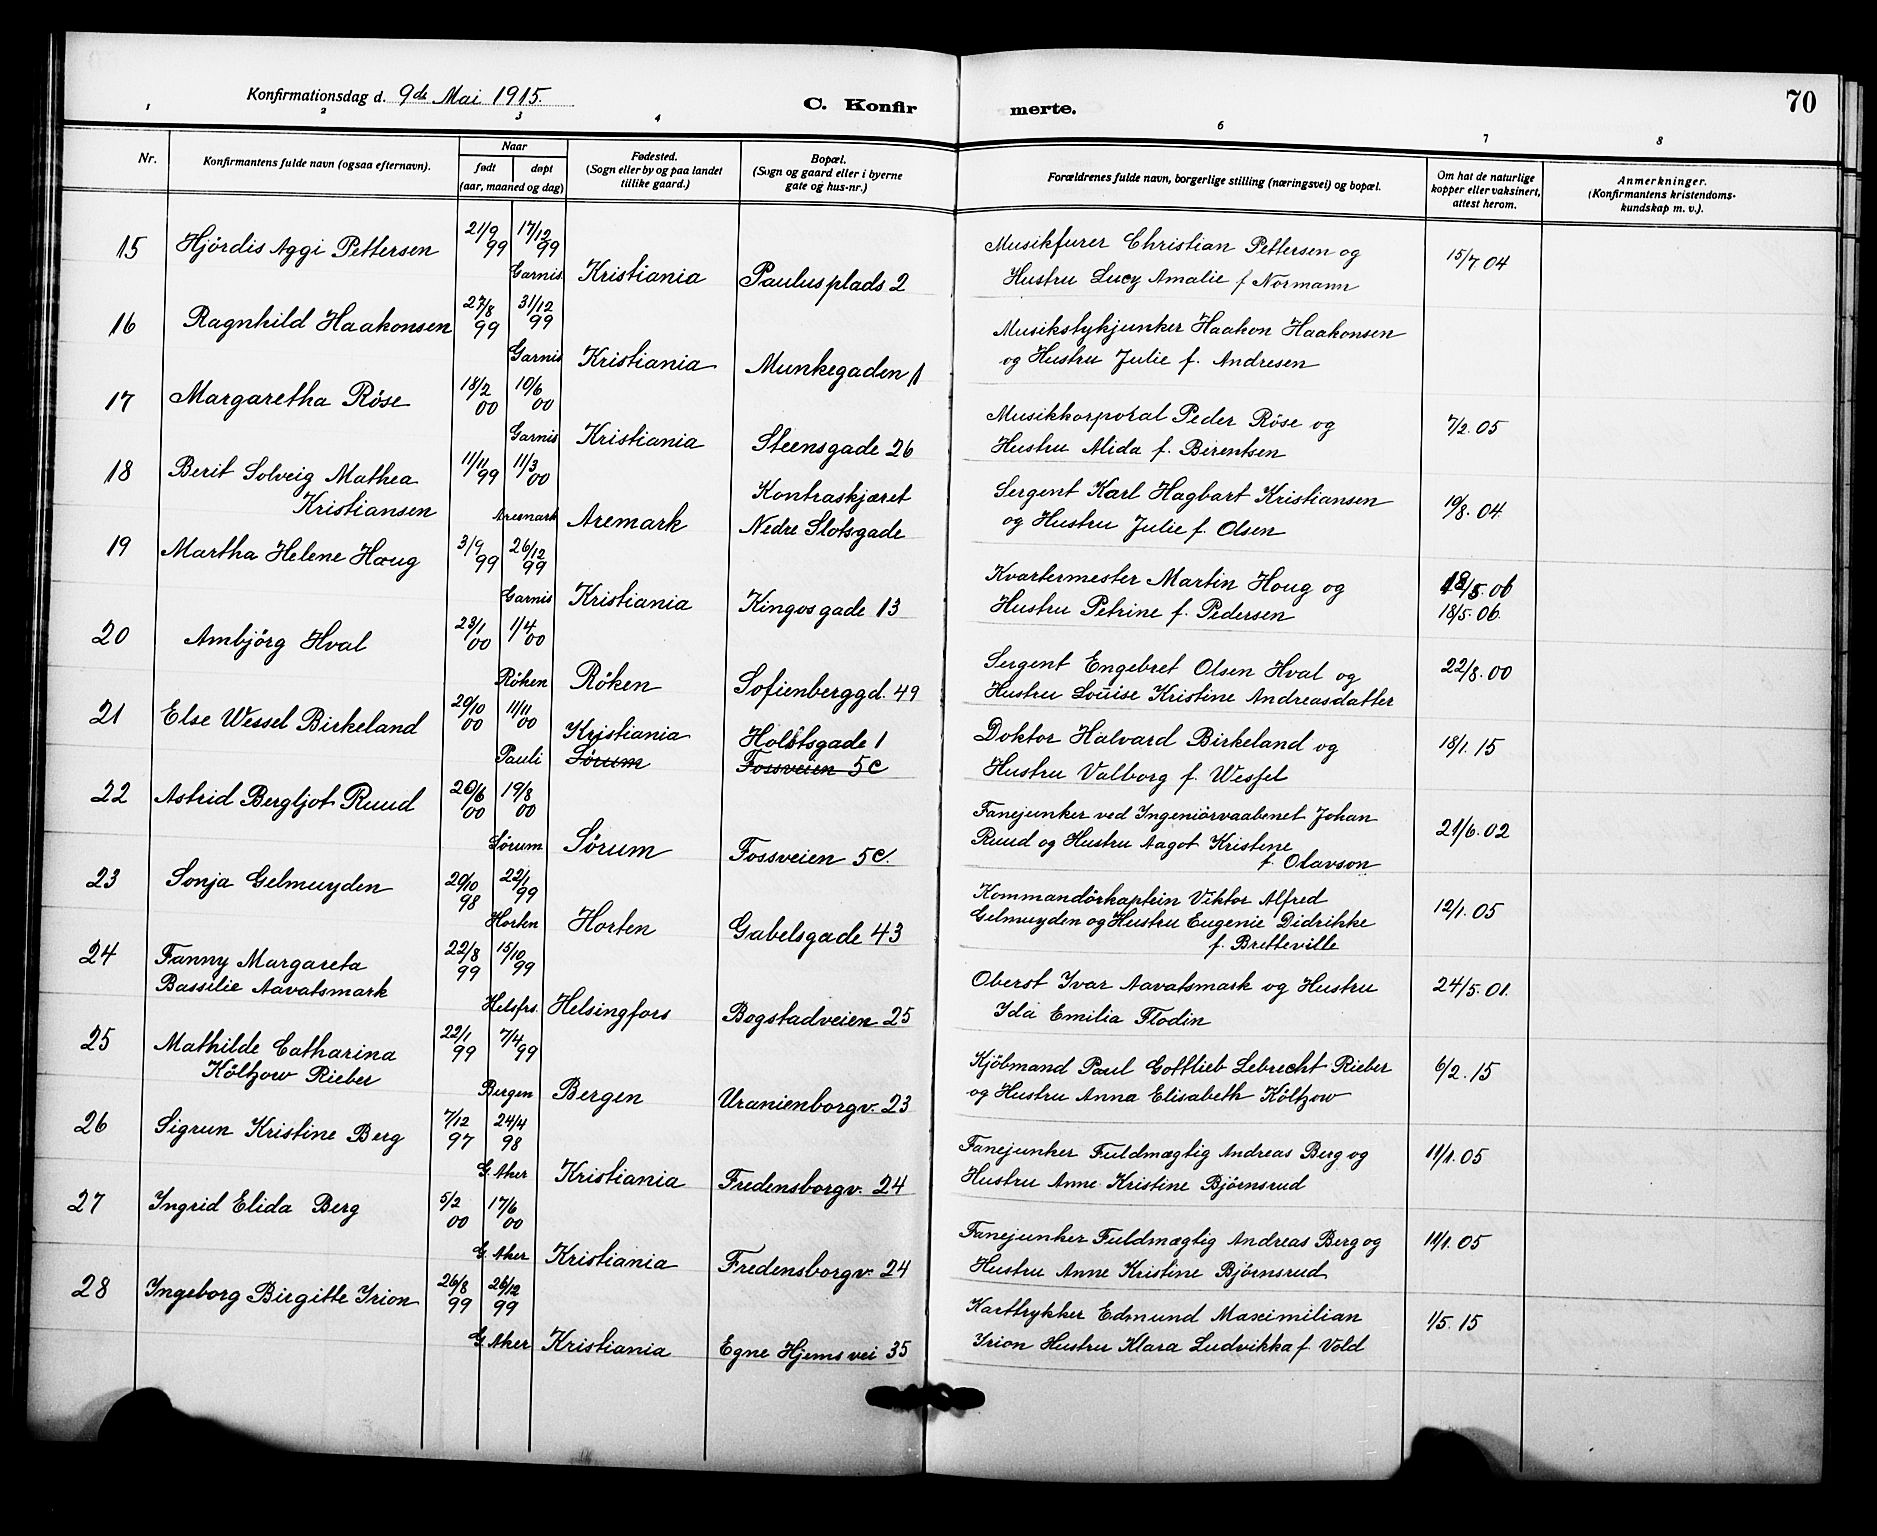 Konfirmationsdag d. 9de Mai 1915.
C. Konfir
merte.
70
1 2 3 4 6 7 8
Nr.
Konfirmantens fulde navn (ogsaa efternavn).
Naar
født døpt
(aar, maaned og dag)
Fødested.
(Sogn eller by og paa landet
tillike gaard.)
Bopæl.
(Sogn og gaard eller i byerne
gate og hus-nr.)
Forældrenes fulde navn, borgerlige stilling (næringsvei) og bopæl.
Om hat de naturlige
kopper eller vaksinert,
attest herom.
Anmerkninger.
(Konfirmantens kristendoms-
kundskap m. v.).
15 Hjördis Aggi Pettersen 21/9 99 17/12 99 Musikfurer Christian Pettersen og 15/7 04
Garnis. Kristiania Paulusplads 2 Hustru Lucy Amalie f Normann
16 Ragnhild Haakonsen 27/8 99 31/12 99 Musikstykjunker Haakon Haakonsen
Garnis Kristiania Munkegaden 1 og Hustru Julie f. Andresen
17 Margaretha Röse 18/2 00 10/6 00 Musikkorporal Peder Röse og 7/2.05
Garnis Kristiania Steensgade 26 Hustru Alida f. Berentsen
18 Berit Solveig Mathea 11/11 99 11/3 00 Kontraskjæret Sergent Karl Hagbart Kristiansen 19/8.04
Kristiansen Aremark Aremark Nedre Slotsgade og Hustru Julie f. Olsen
19 Martha Helene Houg 3/9 99 26/12 99 Kvartermester Martin Houg og 18/5.06
Garnis Kristiania Kingosgade 13 Hustru Petrine f. Pedersen 18/5.06.
20 Ambjörg Hval 23/1 00 1/4 00 Sergent Engebret Olsen Hval og 22/8.00
Röken Röken Sofienberggd. 49 Hustru Louise Kristine Andreasdatter
21 Else Wessel Birkeland 20/10 00 11/11 00 Kristiania Holstsgade 1 Doktor Halvard Birkeland og 18/1.15
Pauli Sørum Fossveien 5c Hustru Valborg f. Wessel
22 Astrid Bergljot Ruud 20/6 00 19/8 00 Fanejunker ved Ingeniørvaabenet Johan 21/6.02
Sørum Sørum Fossveien 5c. Ruud og Hustru Aagot Kristine
f. Olavson
23 Sonja Gelmuyden 20/10 98 22/1 99 Kommandörkaptein Viktor Alfred 12/1.05
Horten Horten Gabelsgade 43 Gelmuyden og Hustru Eugenie Didrikke
f. Bretteville
24 Fanny Margareta 22/8 99 15/10 99 Oberst Ivar Aavatsmark og Hustru 24/5.01.
Bassilie Aavatsmark Helsfrs. Helsingfors Bogstadveien 25 Ida Emilia Flodin
25 Mathilde Catharina 22/1 99 7/4 99 Kjöbmand Paul Gottlieb Lebrecht Rieber 6/2.15
Költzow Rieber Bergen Bergen Uranienborgv. 23 og Hustru Anna Elisabeth Költzow
26 Sigrun Kristine Berg 7/12 97 24/4 98 Fanejunker Fuldmægtig Andreas Berg og 11/1.05
G. Aker Kristiania Fredensborgv. 24 Hustru Anne Kristine Bjørnsrud
27 Ingrid Elida Berg 5/2 00 17/6 00 Fanejunker Fuldmægtig Andreas Berg og 11/1.05
G. Aker Kristiania Fredensborgv. 24 Hustru Anne Kristine Bjørnsrud
28 Ingeborg Birgitte Irion 26/8 99 26/12 99 Karttrykker Edmund Maximilian 1/5.15
G. Aker Kristiania Egne Hjems vei 35 Irion Hustru Klara Ludvikka f. Vold